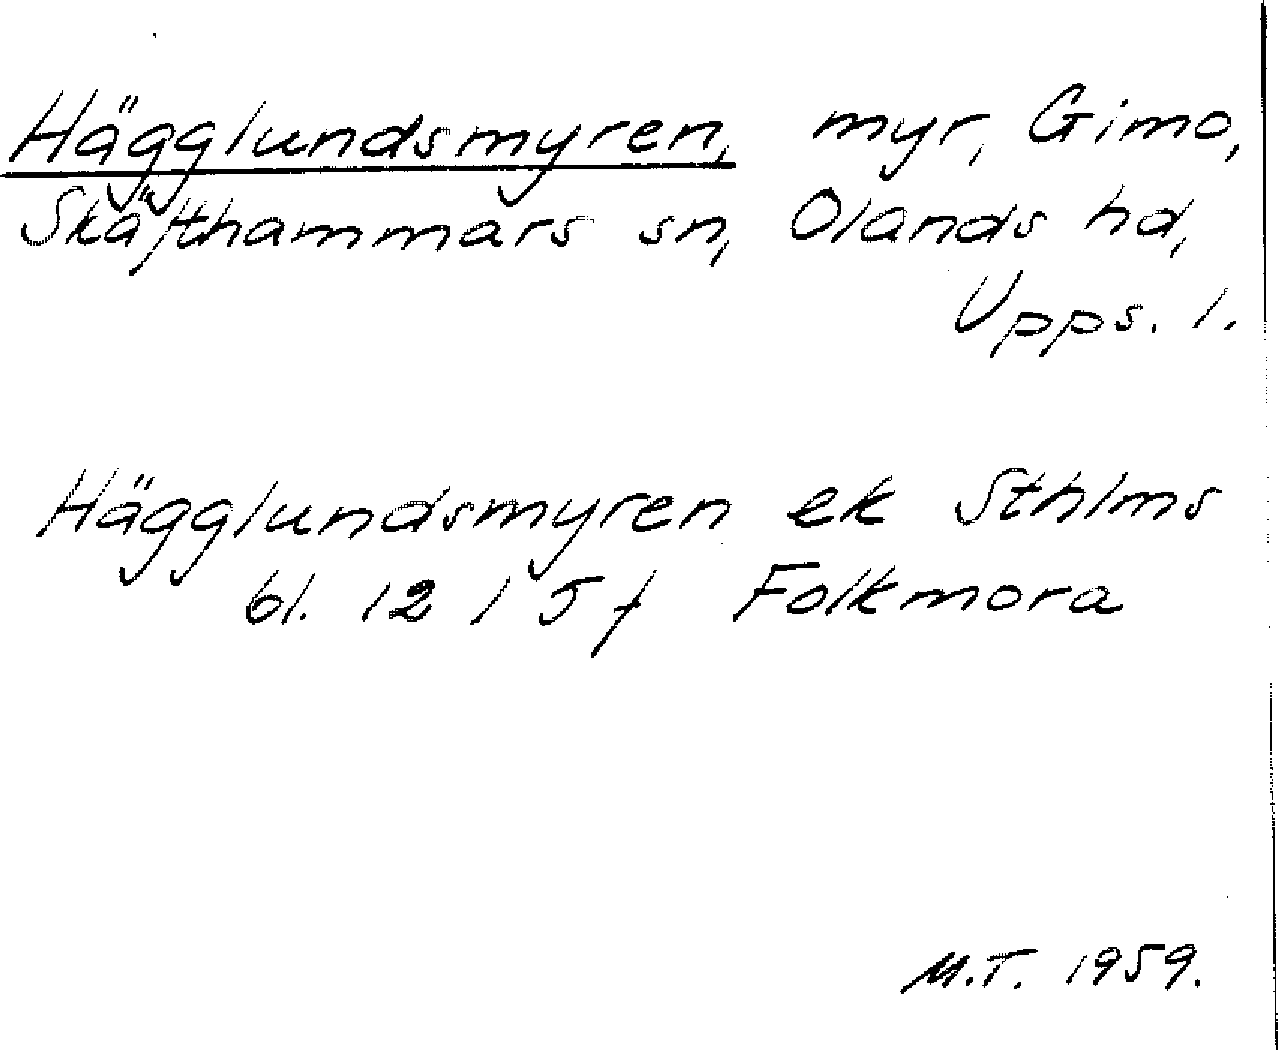 Hägglundsmyren, myr, Gimo,
Skäfthammars sn, Olands hd,
Upps. l.
Hägglundsmyren ek Sthlms
bl. 12 I 5 f Folkmora
M.T. 1959.